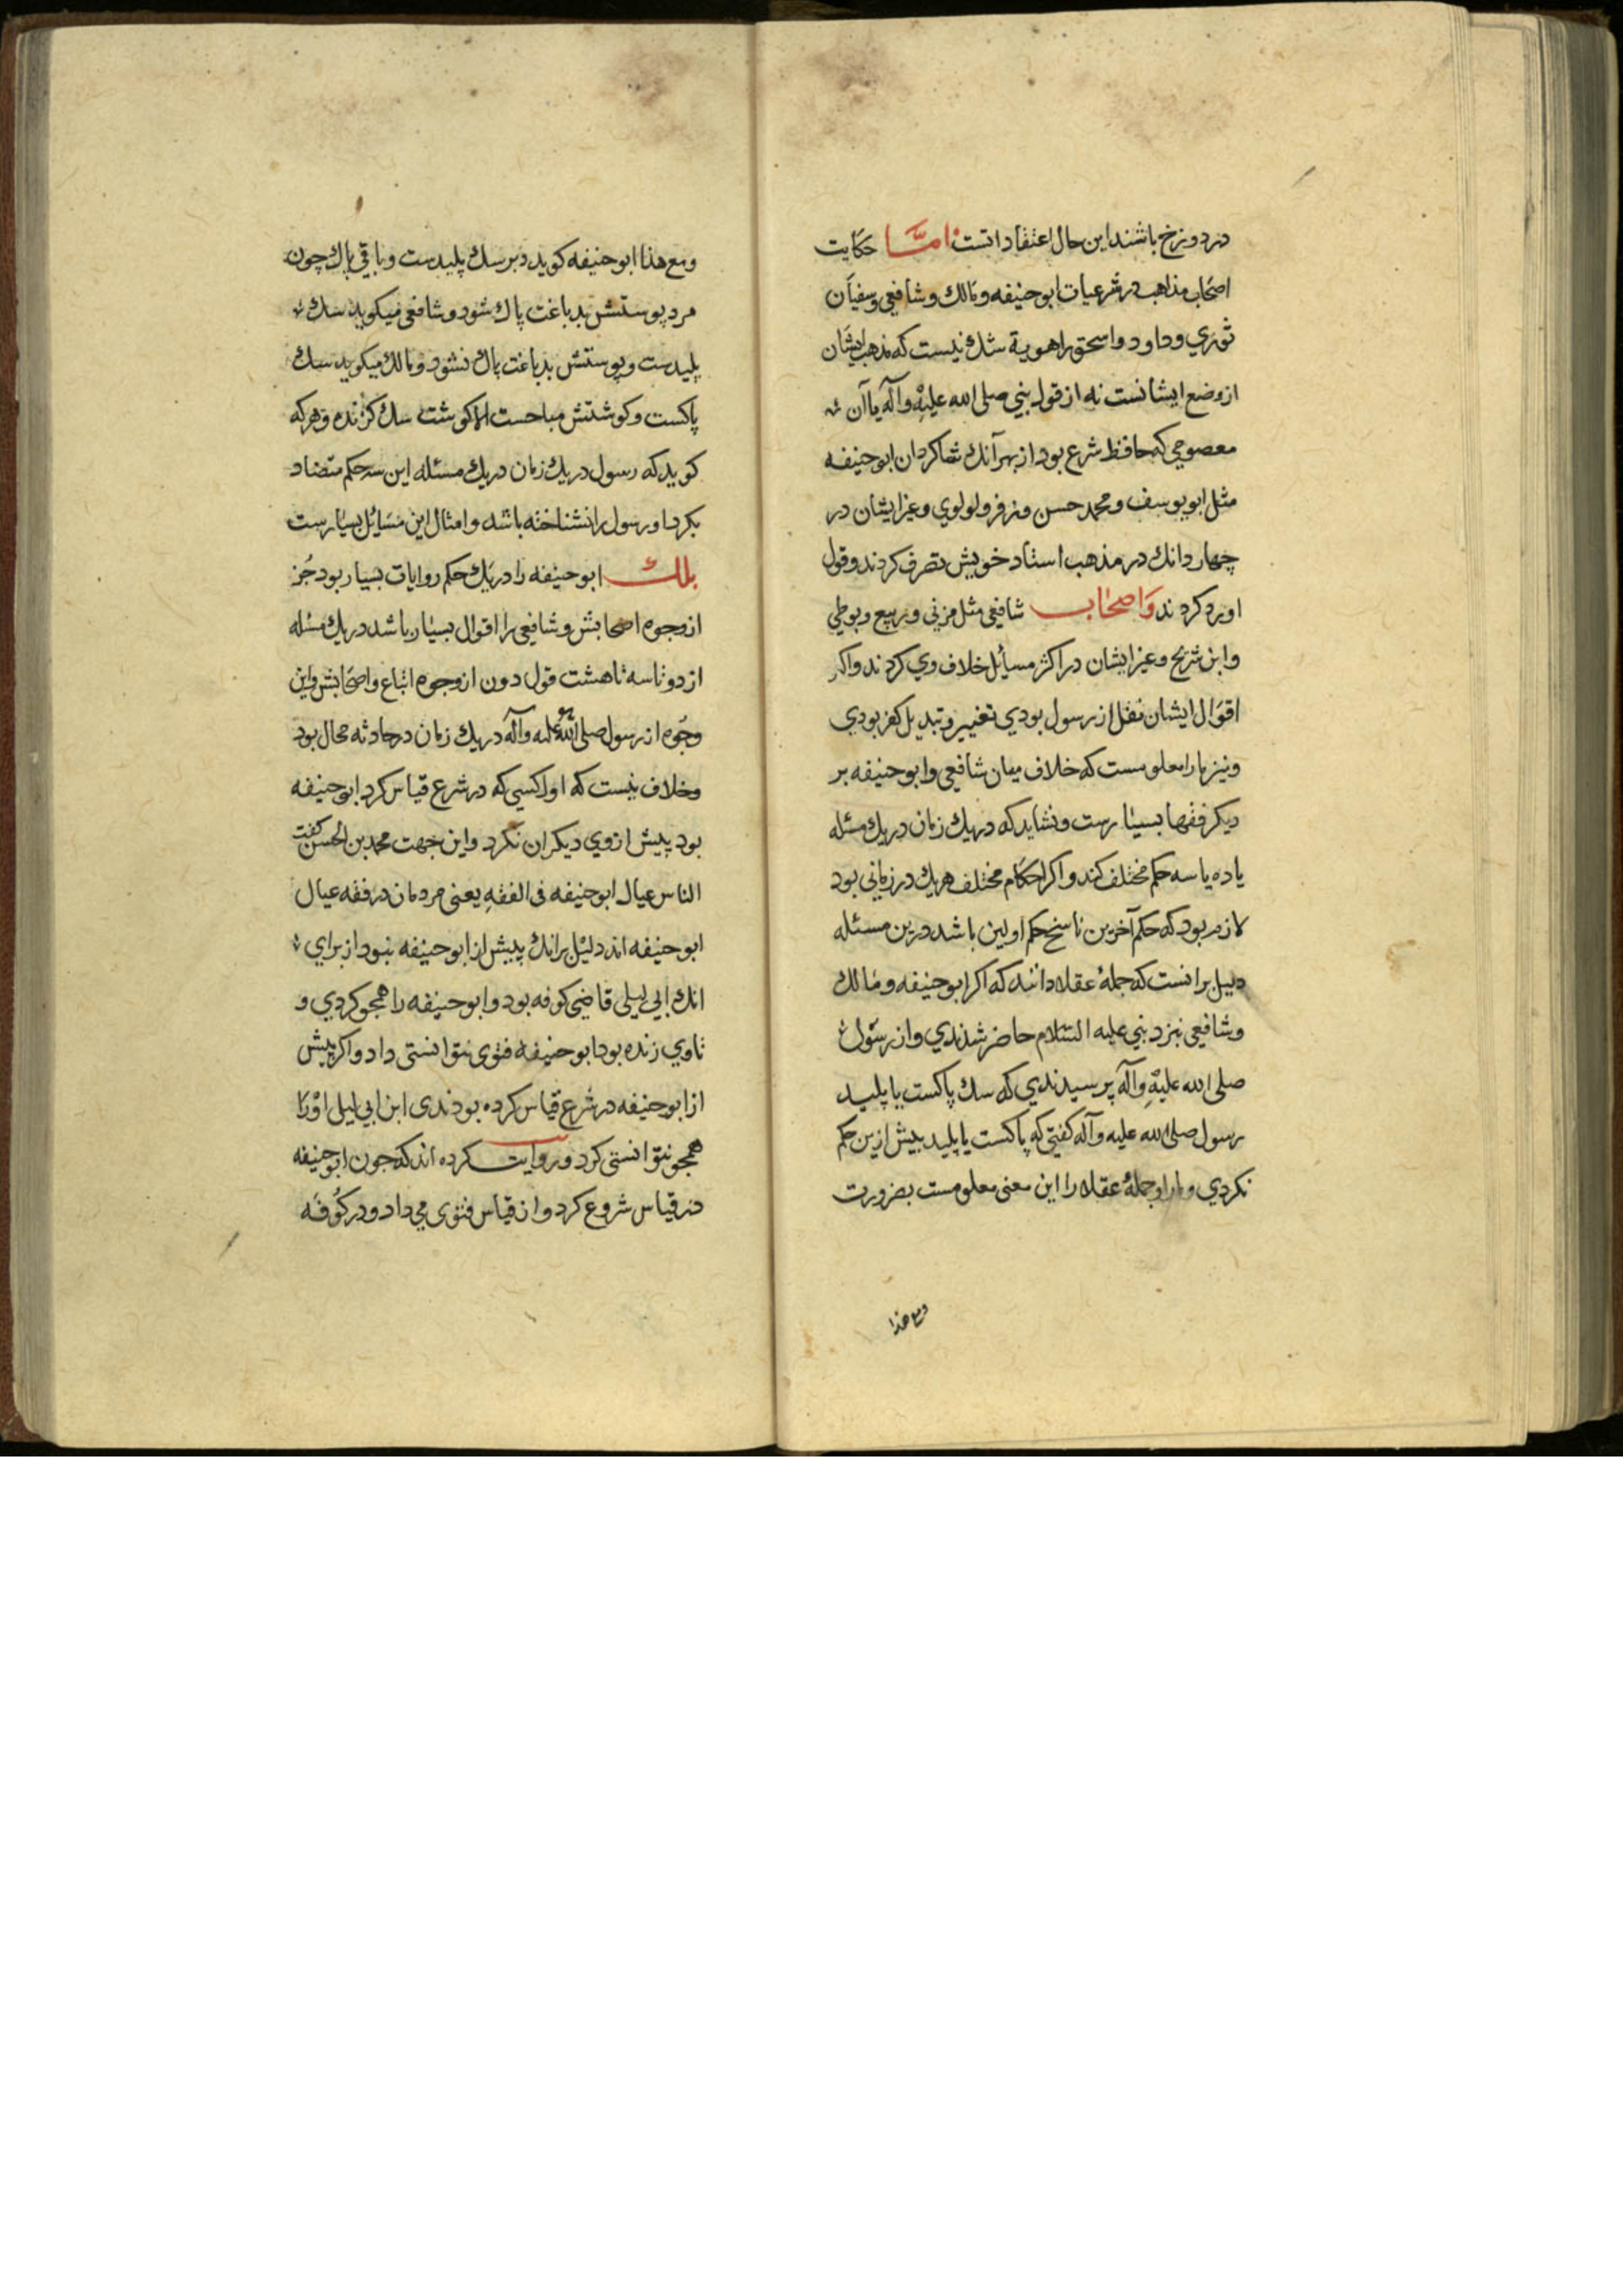 در دوزخ باشند این حال اعتقاد اتست اما حکایت
اصحاب مذاهب در شرعیات ابو حنیفه و مالك و شافعی و سفیان
ثوري و داود و اسحق راهویة شك نیست که مذهب ایشان
از وضع ایشانست نه از قول نبي صلی الله علیه وآله یا آن
معصومي که حافظ شرع بود از بهر آنك شاکردان ابو حنیفه
مثل ابو یوسف و محمد حسن و زفر و لولوي و غیر ایشان در
چهار دانك در مذهب استاد خویش تصرف کردند و قول
او رد کردند و اصحاب شافعی مثل مزني و ربیع و بوطي
و ابن شریح و غیر ایشان در اکثر مسایل خلاف وي کردند و اکر
اقوال ایشان نقل از رسول بودي تغییر و تبدیل کفر بودي
و نیز ما را معلومست که خلاف میان شافعي و ابو حنیفه بر
دیکر فقها بسیارست و نشاید که در یك زمان در یك مسئله
یا ده یا سه حکم مختلف کند و اکر احکام مختلف هریك در زماني بود
لازم بود که حکم آخرین ناسخ حکم اولین باشد درین مسئله
دلیل برانست که جملهٔ عقلا دانند که اکر ابو حنیفه و مالك
و شافعي نزد نبي علیه السلام حاضر شدندي و از رسول
صلی الله علیه وآله پرسیدندي که سك پاکست یا پلید
رسول صلی الله علیه وآله کفتي که پاکست یا پلید بیش ازین حکم
نکردي و ما را و جملهٔ عقلا را این معنی معلومست بضرورت
ومع هذا
ومع هذا ابو حنیفه کوید دبر سك پلیدست و باقي پاك چون
مرد پوستش بدباغت پاك شود و شافعی میکوید سك
پلیدست و پوستش بدباغت پاك نشود و مالك میکوید سك
پاکست و کوشتش مباحست الا کوشت سك کزنده و هر که
کوید که رسول در یك زمان در یك مسئله این سه حکم متضاد
بکرد او رسول را نشناخته باشد و امثال این مسایل بسیارست
بلك ابو حنیفه را در یك حکم روایات بسیار بود جز
از وجوه اصحابش و شافعی را اقوال بسیار باشد در یك مسئله
از دو تا سه تا هشت قول دون از وجوه اتباع و اصحابش و این
وجوه از رسول صلی الله علیه وآله در یك زمان در حادثه محال بود
و خلاف نیست که اول کسي که در شرع قیاس کرد ابو حنیفه
بود پیش از وي دیکران نکرد و این جهت محمد بن الحسن کفت
الناس عیال ابو حنیفه فی الفقه یعنی مردمان در فقه عیال
ابو حنیفه اند دلیل برانك پیش از ابو حنیفه نبود از برای
انك ابي لیلی قاضي کوفه بود و ابو حنیفه را هجو کردي و
تا وي زنده بود ابو حنیفه فتوی نتوانستی داد و اکر پیش
از ابو حنیفه در شرع قیاس کرده بودندی ابن ابي لیلی او را
هجو نتوانستی کرد و روایت کرده اند که جون ابو حنیفه
در قیاس شروع کرد و از قیاس فتوی می داد و در کوفه